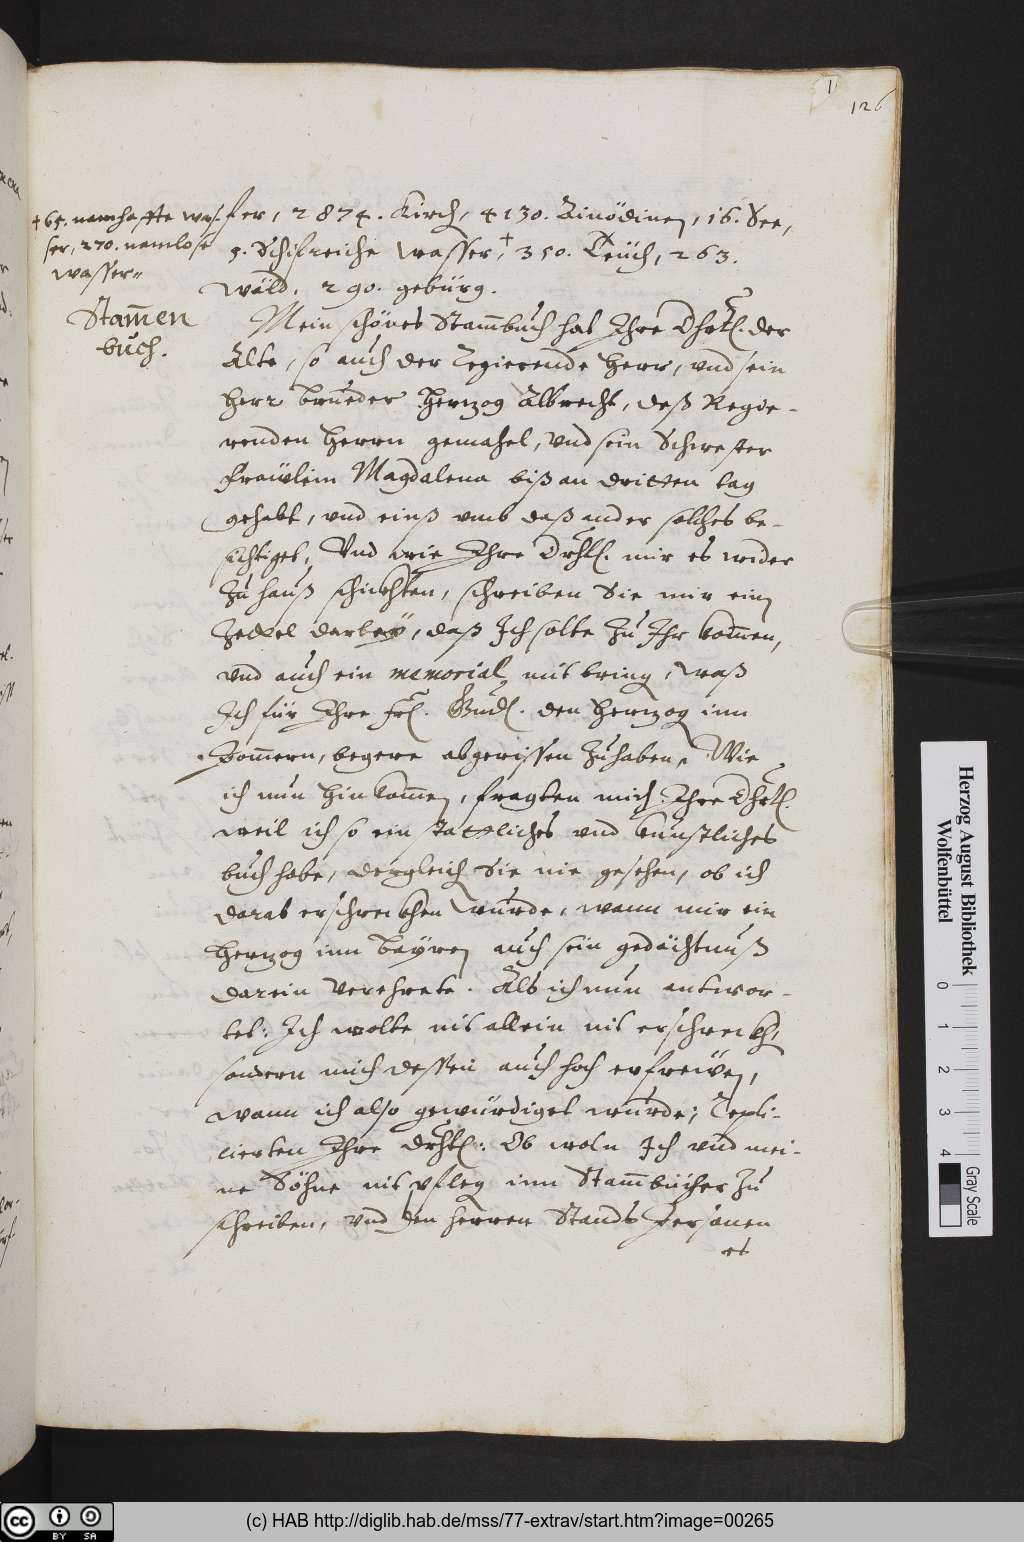 126
fer, 2874. Kirch, 4130. Einödinen, 16. See,
9. Schifreiche wasser,† 350. Teüch, 263.
Wäld, 290. gebürg.
† 65. namhaffte was-
ser, 270. namlose
wasser
Stam̄en
buch.
Mein schönes Stam̄buch hat Ihre Dhrtl. der
Alte, so auch der Regierende Herr, vnd sein
Herr Brueder Hertzog Albrecht, deß Regie-
renden Herrn gemahel, vnd sein Schwester
Fraülein Magdalena biß an dritten tag
gehabt, vnd einß vmb daß ander solches be-
sichtiget, Vnd wie Ihre Drhtl. mir es wider
zu hauß schickhten, schreiben Sie mir ein
Zedel darbeÿ, daß Ich solte zu Ihr kom̄en,
vnd auch ein memorial mit bring, waß
Ich für Ihre Frl. Gndl. den Hertzog inn
Pom̄ern, begere abgerissen zuhaben, Wie
ich nun hin kom̄en, fragten mich Ihre Dhrtl.
weil ich so ein stattliches vnd künstliches
buch habe, dergleich Sie nie gesehen, ob ich
darab erschreckhen wurde, wann mir ein
Hertzog inn Baÿren auch sein gedächtnuß
darein verehrete. Als ich nun antwor-
tet: Ich wolte nit allein nit erschreckh,
sondern mich dessen auch hoch erfreüen,
wann ich also gewürdiget wurde; Repli-
cierten Ihre Drhtl: Ob woln Ich vnd mei-
ne Söhne nit pfleg inn Stam̄bücher zu
schreiben, vnd den Herren Stands Personen
et
Herzog August Bibliothek
Wolfenbüttel
0 1 2 3 4
Gray Scale
cc BY SA
(c) HAB http://diglib.hab.de/mss/77-extrav/start.htm?image=00265